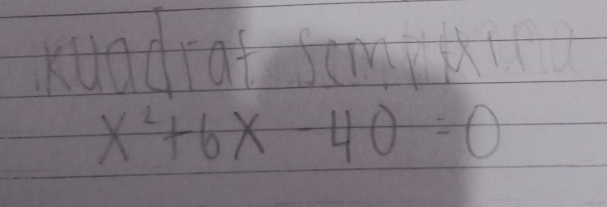 kuadrat sempurna
x²+6x-40=0